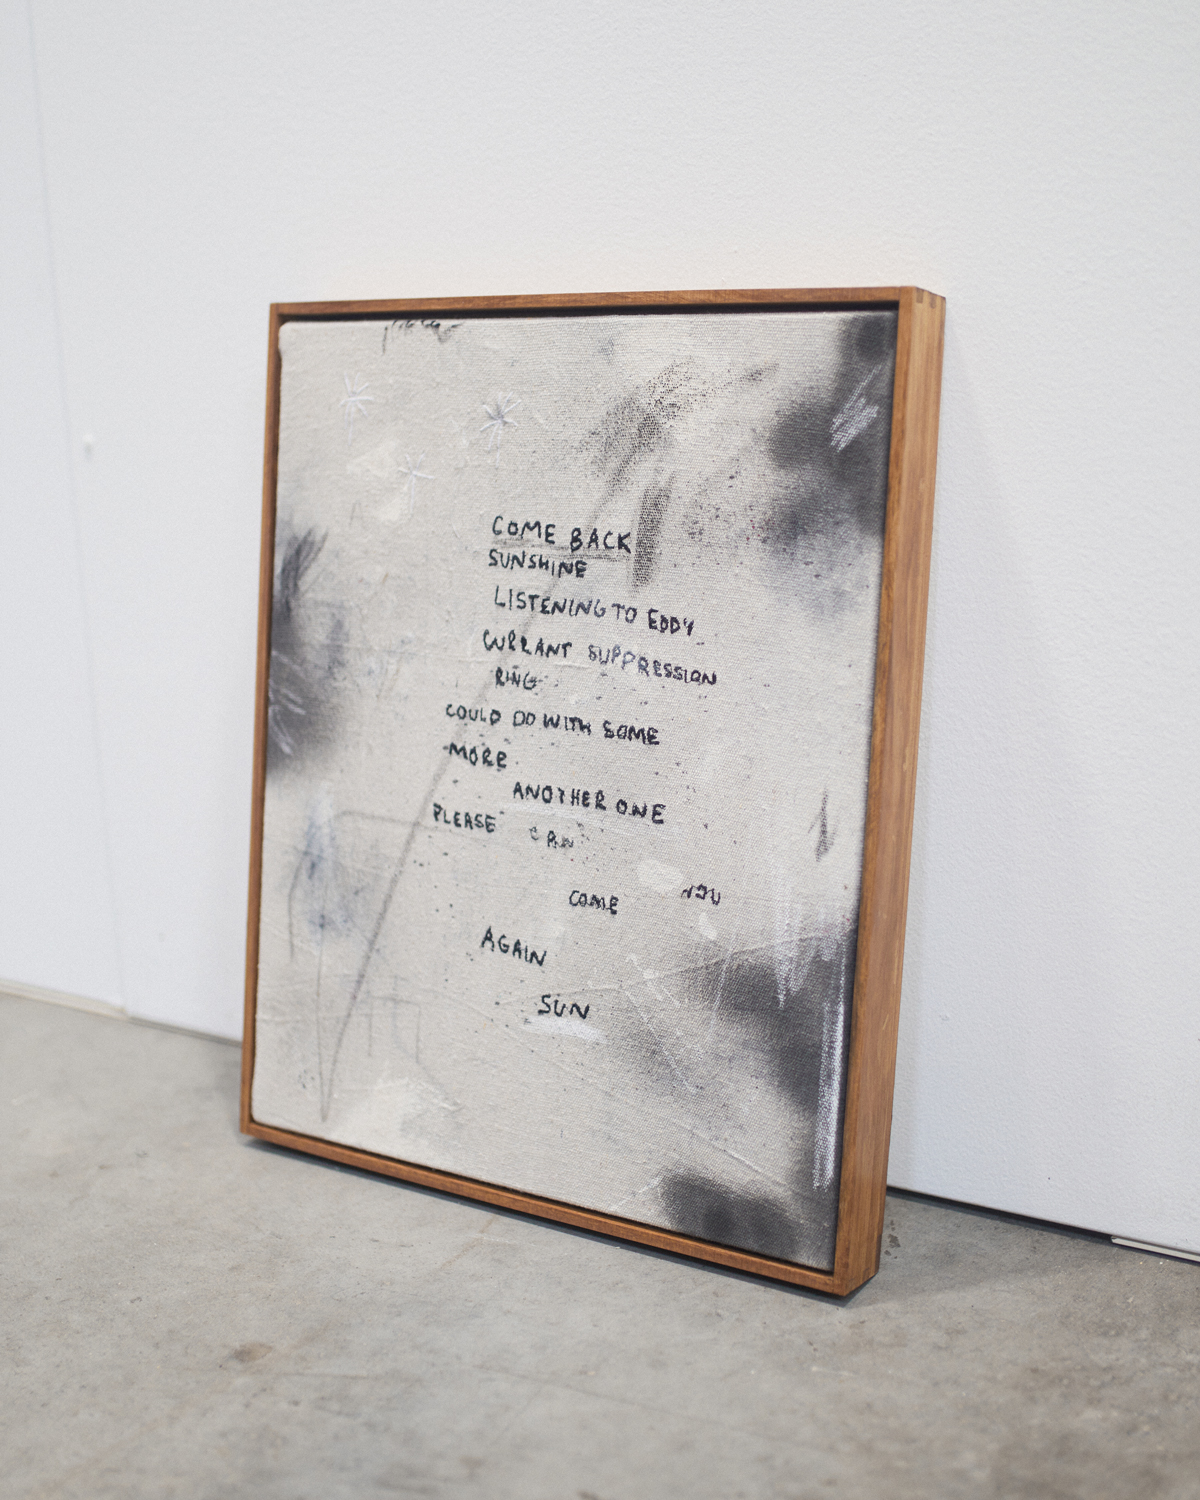 COME BACK
SUNSHINE
LISTENING TO EDDY
CURRANT SUPPRESSION
RING
COULD DO WITH SOME
MORE
ANOTHER ONE
PLEASE CAN
YOU
COME
AGAIN
SUN